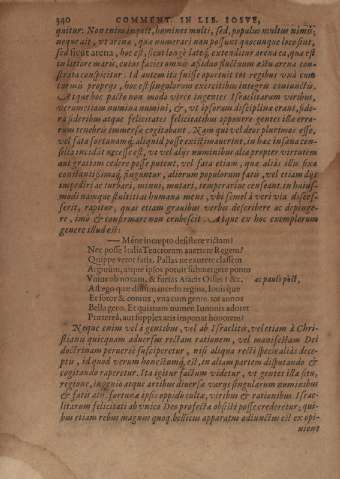 340 COMMENT. IN LIB. IOSVE,
quitur. Non enim impet, homines multi, sed, populus multus nimis,
neque ait, vt arena, qua numerari non possunt quocunque loco sint,
sed sicut arena, hoc est, sicut longè latèq, extenditur arena ea, quæ est
in littore maris, cuius facies omnis assiduo fluctuum æstu arena con-
strata conspicitur. Id autem ita fuisse oportuit tot regibus vnà cum
turmis proprijs, hoc est singularum exercitibus integris coniunctis.
Atque hoc pacto non modo vires ingentes Israelitarum viribus,
verumetiam numina numini, &, vt ipsorum disciplina erant, side-
ra sideribus atque felicitates felicitatibus opponere gentes illa erra-
rum tenebris immersæ cogitabant. Nam qui vel deos plurimos esse,
vel fata fortunamq, aliquid posse existimauerunt, in hoc insana con-
silia incidat necesse est, vt vel alijs numinibus alia propter virtutem
aut gratiam cedere posse putent, vel fata etiam, quæ alijs illis fixa
constantissimaq, finguntur, aliorum populorum fatis, vel etiam dijs
impediri ac turbari, minui, mutari, temperarive censeant. in huius-
modi namque stultitias humana mens, vbi semel à veri via disces-
serit, rapitur, quas etiam grauibus verbis describere ac depinge-
re, imò & confirmare non erubescit. Atque ex hoc exemplorum
genere illud est:
— Mène incepto desistere victam?
Nec posse Italia Teucrorum auertere Regem?
Quippe vetor fatis. Pallas ne exurere classem
Argiuûm, atque ipsos potuit submergere ponto
Vnius ob noxam, & furias Aiacis Oilei? &c. ac paulò pòst,
Ast ego quæ diuûm incedo regina, Iouisque
Et soror & coniux, vna cum gente tot annos
Bella gero. Et quisquam numen Iunonis adoret
Prætereà, aut supplex aris imponat honorem?
Neque enim vel à gentibus, vel ab Israelitis, vel etiam à Chri-
stianis quicquam aduersus rectam rationem, vel manifestam Dei
doctrinam peruersè susciperetur, nisi aliqua recti specie alijs dece-
ptis, id quod verum honestumq, est, in aliam partem disputando &
cogitando raperetur. Ita igitur factum videtur, vt gentes illæ situ,
regione, ingenio atque artibus diuersæ varys singularum numinibus
& fatis atq, fortunæ ipsis oppidis cultæ, viribus & rationibus Israe-
litarum felicitati ab vnico Deo profecta obsisti posse crederetur, qui-
bus etiam rebus magnus quoq, bellicus apparatus adiunctus est ex opi-
nione